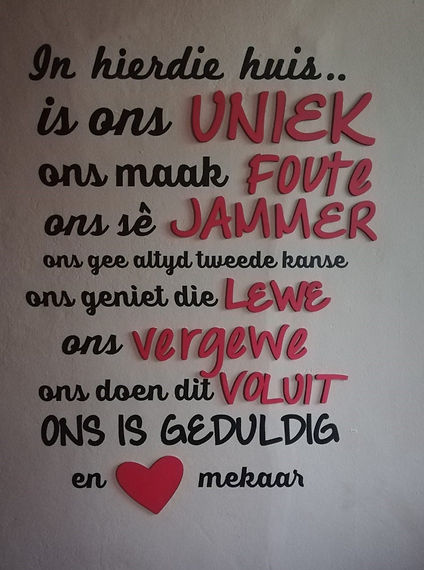 In hierdie huis..
is ons UNIEK
ons maak FOUTE
ons sê JAMMER
ons gee altyd tweede kanse
ons geniet die LEWE
ons vergewe
ons doen dit VOLUIT
ONS IS GEDULDIG
en ❤ mekaar